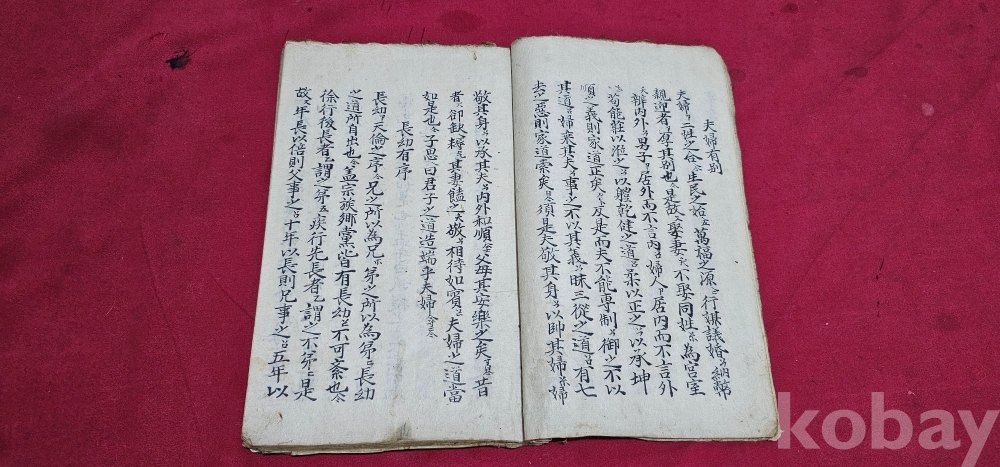 夫婦有別
夫婦二姓之合生民之始萬福之源行媒議婚納幣
親迎者厚其別也是故娶妻不娶同姓為宮室
辨內外男子居外而不言內婦人居內而不言外
苟能莊以涖之以軆乾健之道柔以正之以承坤
順之義則家道正矣反是而夫不能專制御之不以
其道婦乘其夫事之不以其義昧三從之道有七
去之惡則家道索矣須是夫敬其身以帥其婦婦
敬其身以承其夫內外和順父母其安樂之矣昔
者郤缺耨其妻饁之敬相待如賓夫婦之道當
如是也子思曰君子之道造端乎夫婦
長幼有序
長幼天倫之序兄之所以為兄弟之所以為弟長幼
之道所自出也盖宗族鄉黨皆有長幼不可紊也
徐行後長者謂之弟疾行先長者謂之不弟是
故年長以倍則父事之十年以長則兄事之五年以
kobay